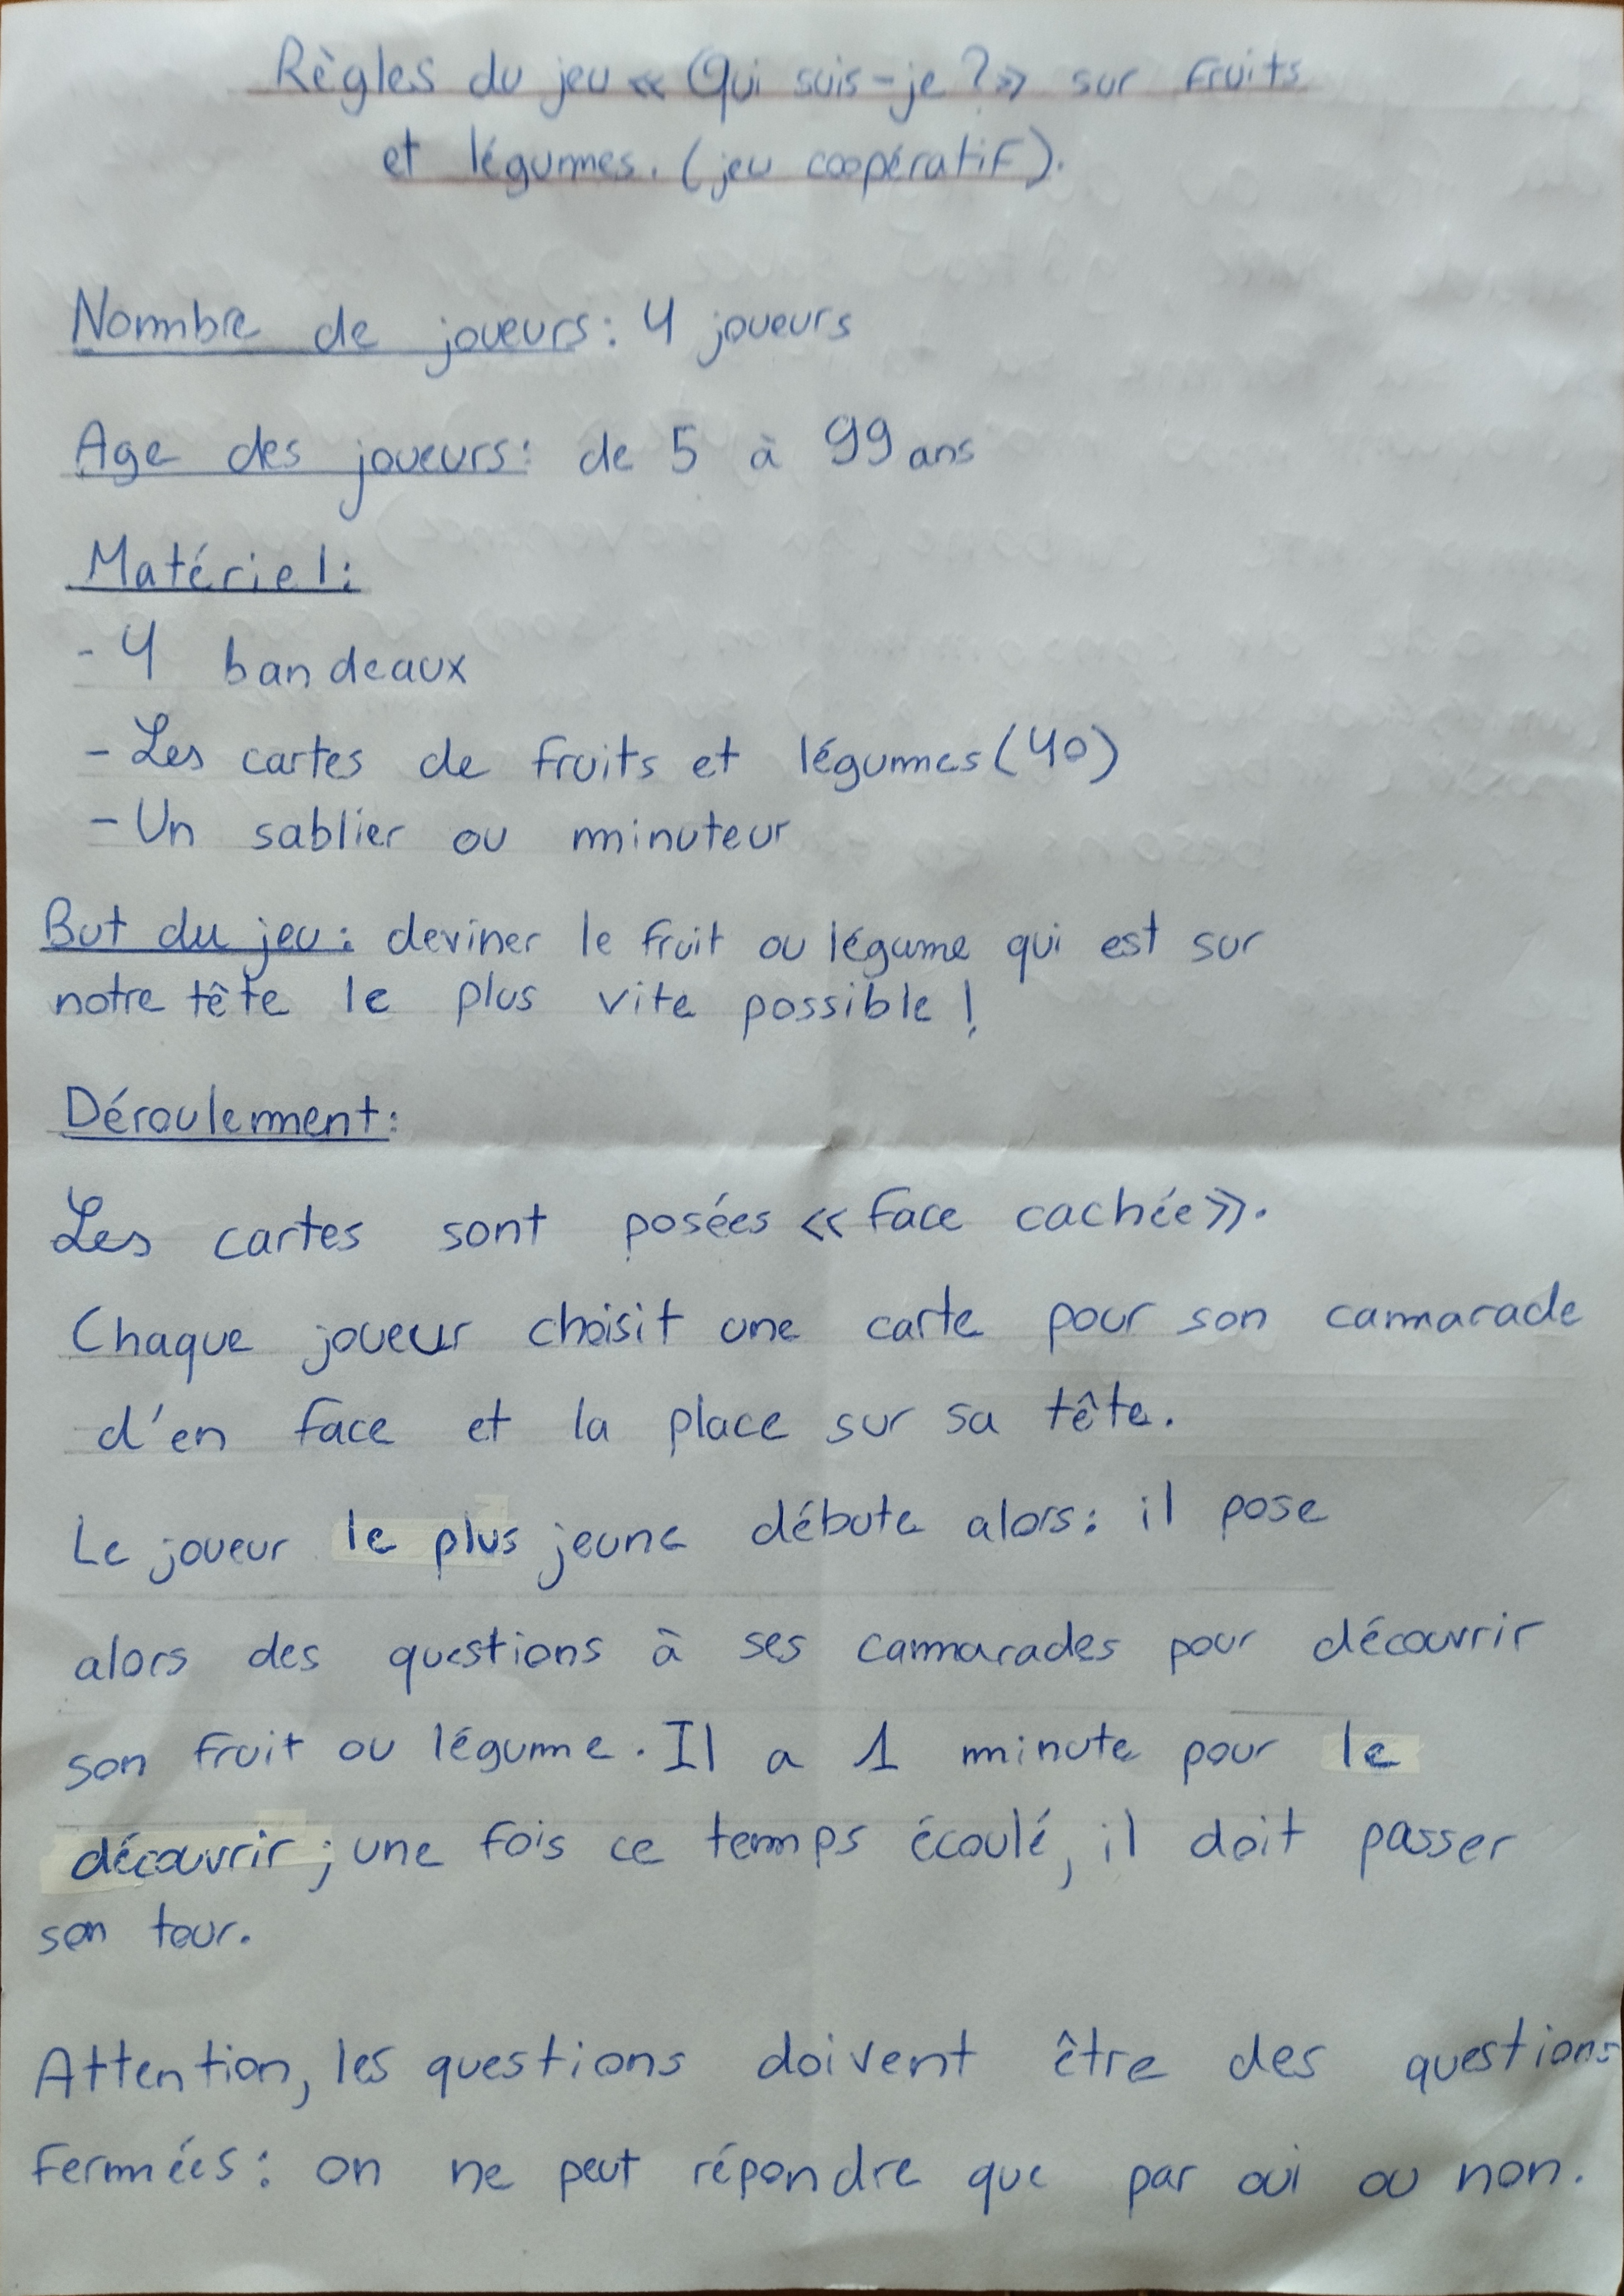 Règles du jeu « Qui suis-je ? » sur fruits
et légumes. (jeu coopératif).
Nombre de joueurs : 4 joueurs
Age des joueurs : de 5 à 99 ans
Matériel :
- 4 bandeaux
- Les cartes de fruits et légumes (40)
- Un sablier ou minuteur
But du jeu : deviner le fruit ou légume qui est sur
notre tête le plus vite possible !
Déroulement :
Les cartes sont posées « face cachée ».
Chaque joueur choisit une carte pour son camarade
d'en face et la place sur sa tête.
Le joueur le plus jeune débute alors : il pose
alors des questions à ses camarades pour découvrir
son fruit ou légume. Il a 1 minute pour le
découvrir ; une fois ce temps écoulé, il doit passer
son tour.
Attention, les questions doivent être des questions
fermées : on ne peut répondre que par oui ou non.